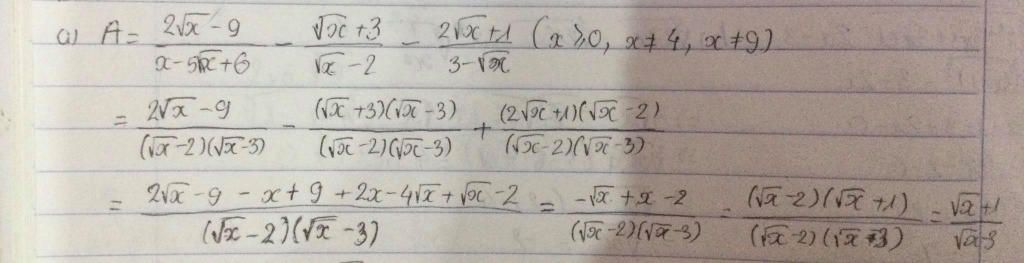 a) A = (2√x - 9)/(x - 5√x + 6) - (√x + 3)/(√x - 2) - (2√x + 1)/(3 - √x) (x ⩾ 0, x ≠ 4, x ≠ 9)
= (2√x - 9)/((√x - 2)(√x - 3)) - ((√x + 3)(√x - 3))/((√x - 2)(√x - 3)) + ((2√x + 1)(√x - 2))/((√x - 2)(√x - 3))
= (2√x - 9 - x + 9 + 2x - 4√x + √x - 2)/((√x - 2)(√x - 3)) = (-√x + x - 2)/((√x - 2)(√x - 3)) = ((√x - 2)(√x + 1))/((√x - 2)(√x - 3)) = (√x + 1)/(√x - 3)